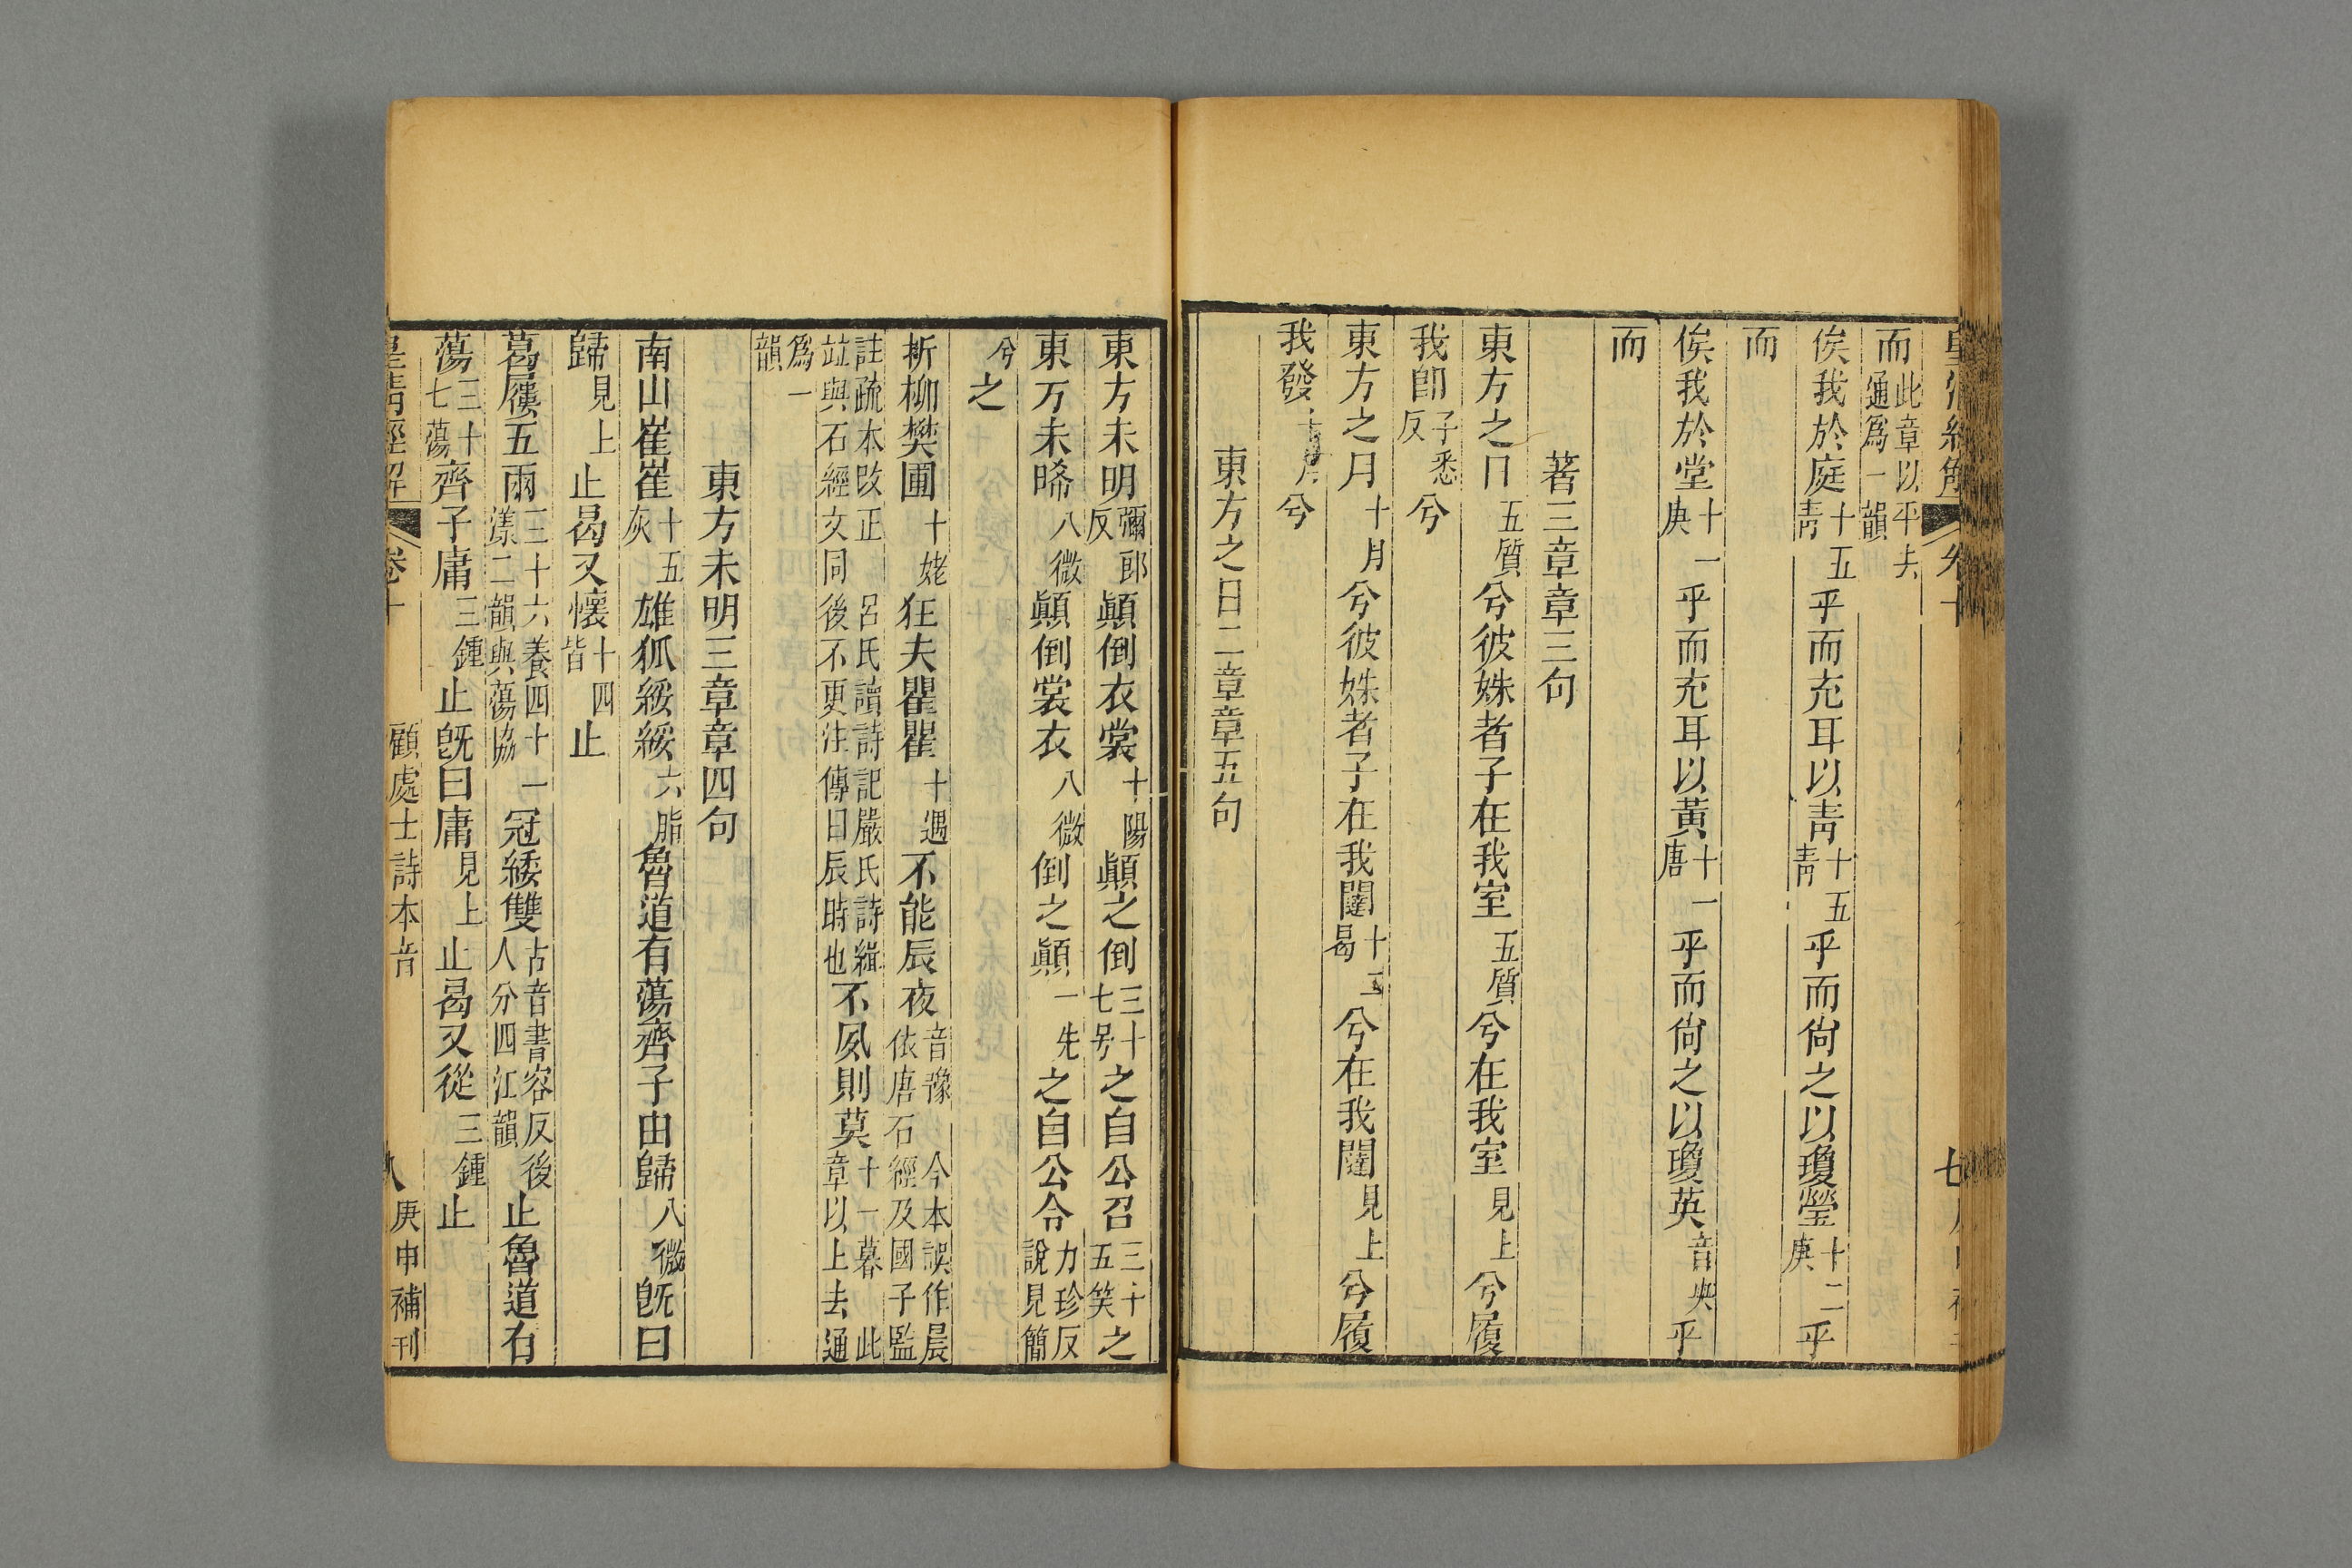 皇清經解 卷十 七
而此章以平去通爲一韻
俟我於庭十五靑乎而充耳以靑十五靑乎而尙之以瓊瑩十二庚乎
而
俟我於堂十一庚乎而充耳以黃十一唐乎而尙之以瓊英音央乎
而
著三章章三句
東方之日五質兮彼姝者子在我室五質兮在我室見上兮履
我卽子悉反兮
東方之月十月兮彼姝者子在我闥十二曷兮在我闥見上兮履
我發十月兮
東方之日二章章五句
東方未明彌郎反顚倒衣裳十陽顚之倒三十七号之自公召三十五笑之
東方未晞八微顚倒裳衣八微倒之顚一先之自公令力珍反說見簡
兮之
折柳樊圃十姥狂夫瞿瞿十遇不能辰夜音豫 今本誤作晨依唐石經及國子監
註疏本改正 呂氏讀詩記嚴氏詩緝竝與石經文同後不更注傳曰辰時也不夙則莫十一暮 此章以上去通
爲一韻
東方未明三章章四句
南山崔崔十五灰雄狐綏綏六脂魯道有蕩齊子由歸八微旣曰
歸見上止曷又懷十四皆止
葛屨五兩三十六養四十一漾二韻與蕩協冠緌雙古音書容反後人分四江韻止魯道有
蕩三十七蕩齊子庸三鍾止旣曰庸見上止曷又從三鍾止
皇淸經解 卷十 顧處士詩本音 八 庚申補刊